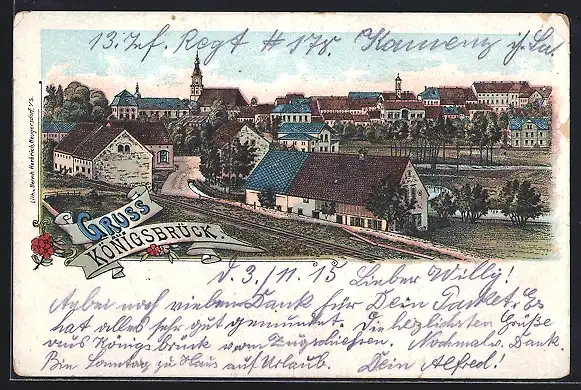 13. Inf. Regt # 178. Kamenz i/Sa
Lith. v. Bernh. Herbrich, Neugersdorf i/S.
GRUSS
aus
KÖNIGSBRÜCK.
d. 3./11. 15 Lieber Willy!
Anbei noch vielen Dank für Dein Packet. Es
hat alles sehr gut gemundet. Die herzlichsten Grüße
aus Königsbrück vom Nochmals. Dank.
Bin Sonntag zu Haus auf Urlaub. Dein Alfred!